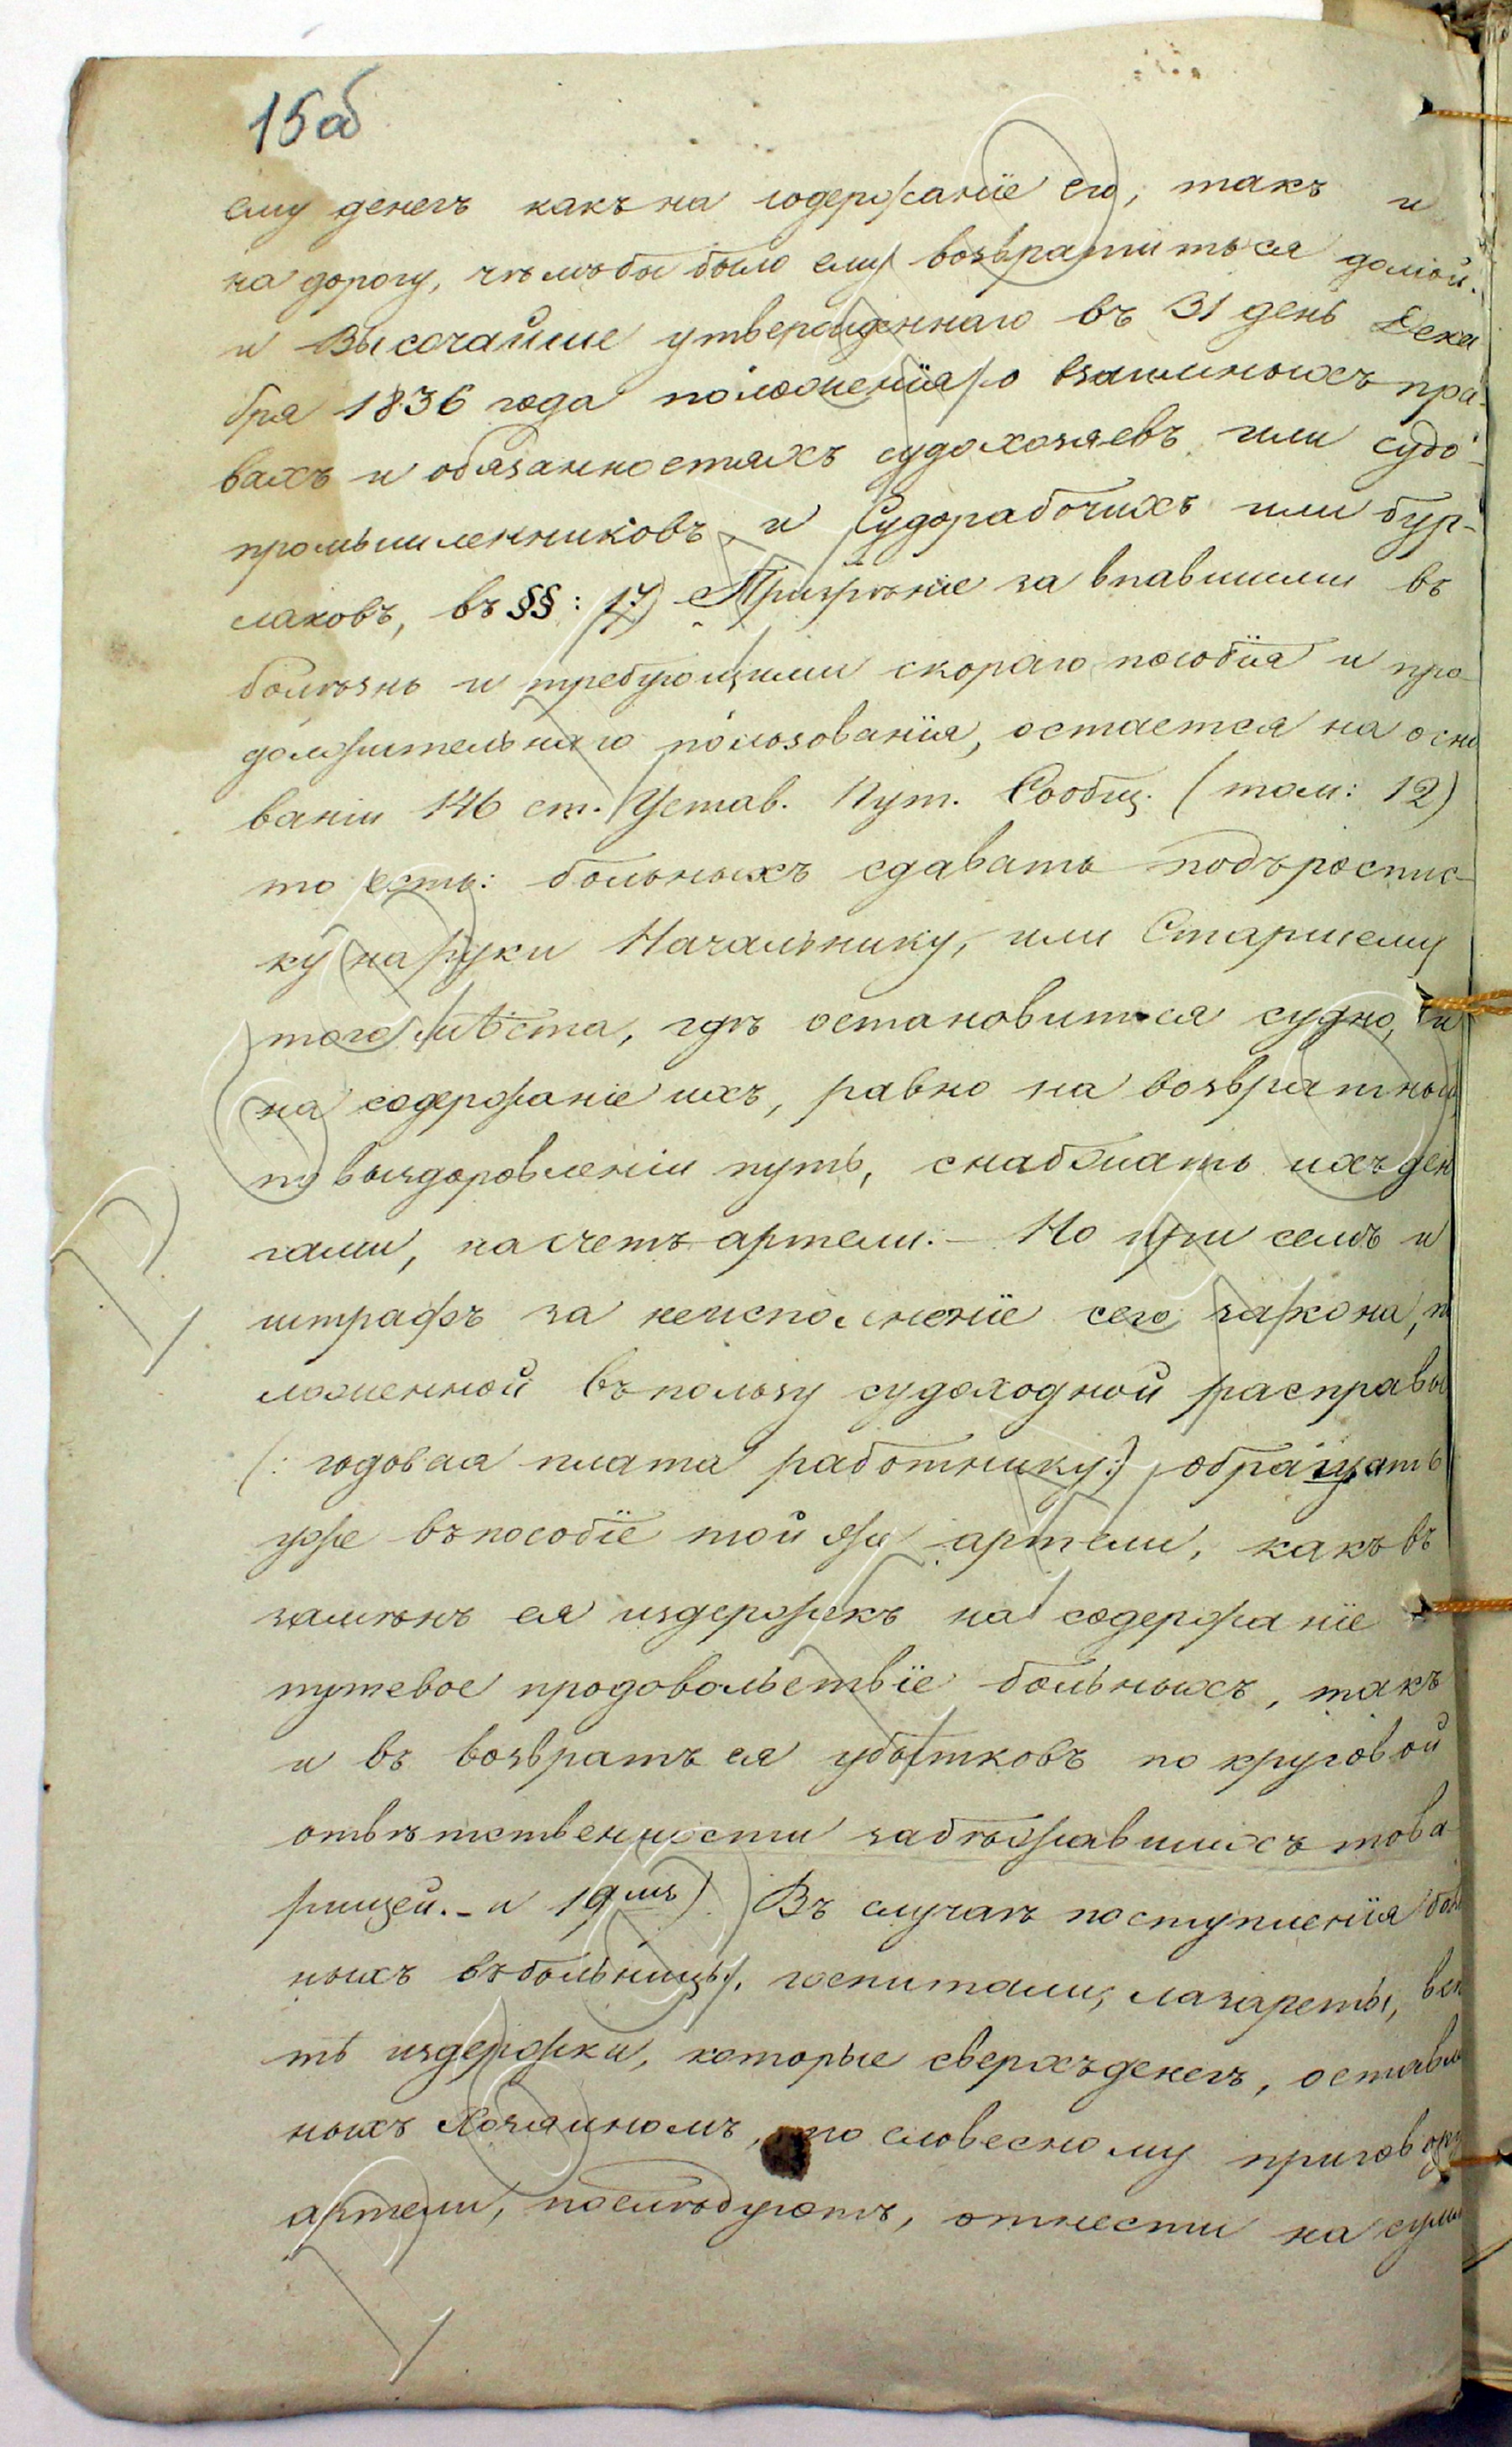 15об
ему денегъ какъ на содержанïе его, такъ и
на дорогу, чѣмъ бы было ему возвратиться домой.
и Высочайше утвержденнаго въ 31 день Дека
бря 1836 года положенïя о взаимныхъ пра-
вахъ и обязанностяхъ судохозяевъ или судо-
промышленниковъ, и Судорабочихъ или бур-
лаковъ, въ §§: 17) Призрѣнïе за впавшими въ
болѣзнь и требующими скораго пособïя и про-
должительнаго пользованïя, остается на осно
ванiи 146 ст. Устав. Пут. Сообщ. (том: 12)
то есть: больныхъ сдавать подъ роспис-
ку на руки Начальнику, или Старшему
того мѣста, гдѣ остановится судно, и
на содержанiе ихъ, равно на возвратный
по выздоровленiи путь, снабжать ихъ ден
гами, на счетъ артели. - Но при семъ и
штрафъ за неисполненïе сего закона, п
ложенной въ пользу судоходной расправы
(: годовая плата работнику:) обращать
уже въ пособïе той же артели, какъ въ
замѣнъ ея издержекъ на содержанïе
путевое продовольствïе больныхъ, такъ
и въ возвратъ ея убытковъ по круговой
отвѣтственности за бѣжавшихъ това
рищей. - и 19мъ) Въ случаѣ поступленïя бол
ныхъ въ больницы, госпитали, лазареты, всѣ
тѣ издержки, которые сверхъ денегъ, оставле
ныхъ Хозяиномъ, по словесному приговору
артели, послѣдуютъ, отнести на сумм